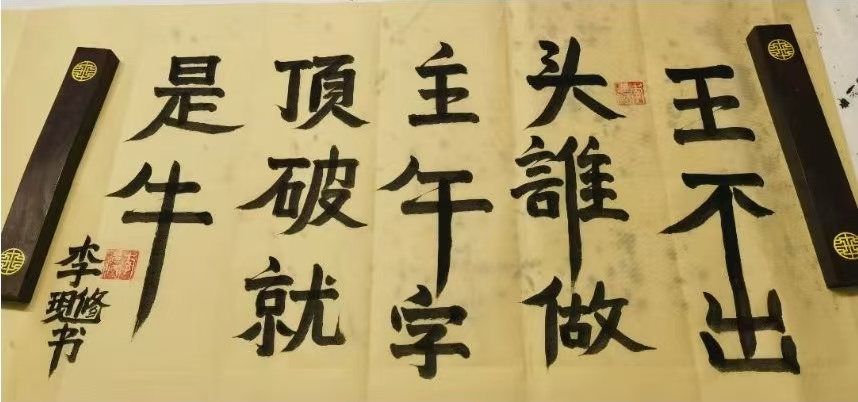 王不出
头誰做
主午字
頂破就
是牛
李修現书